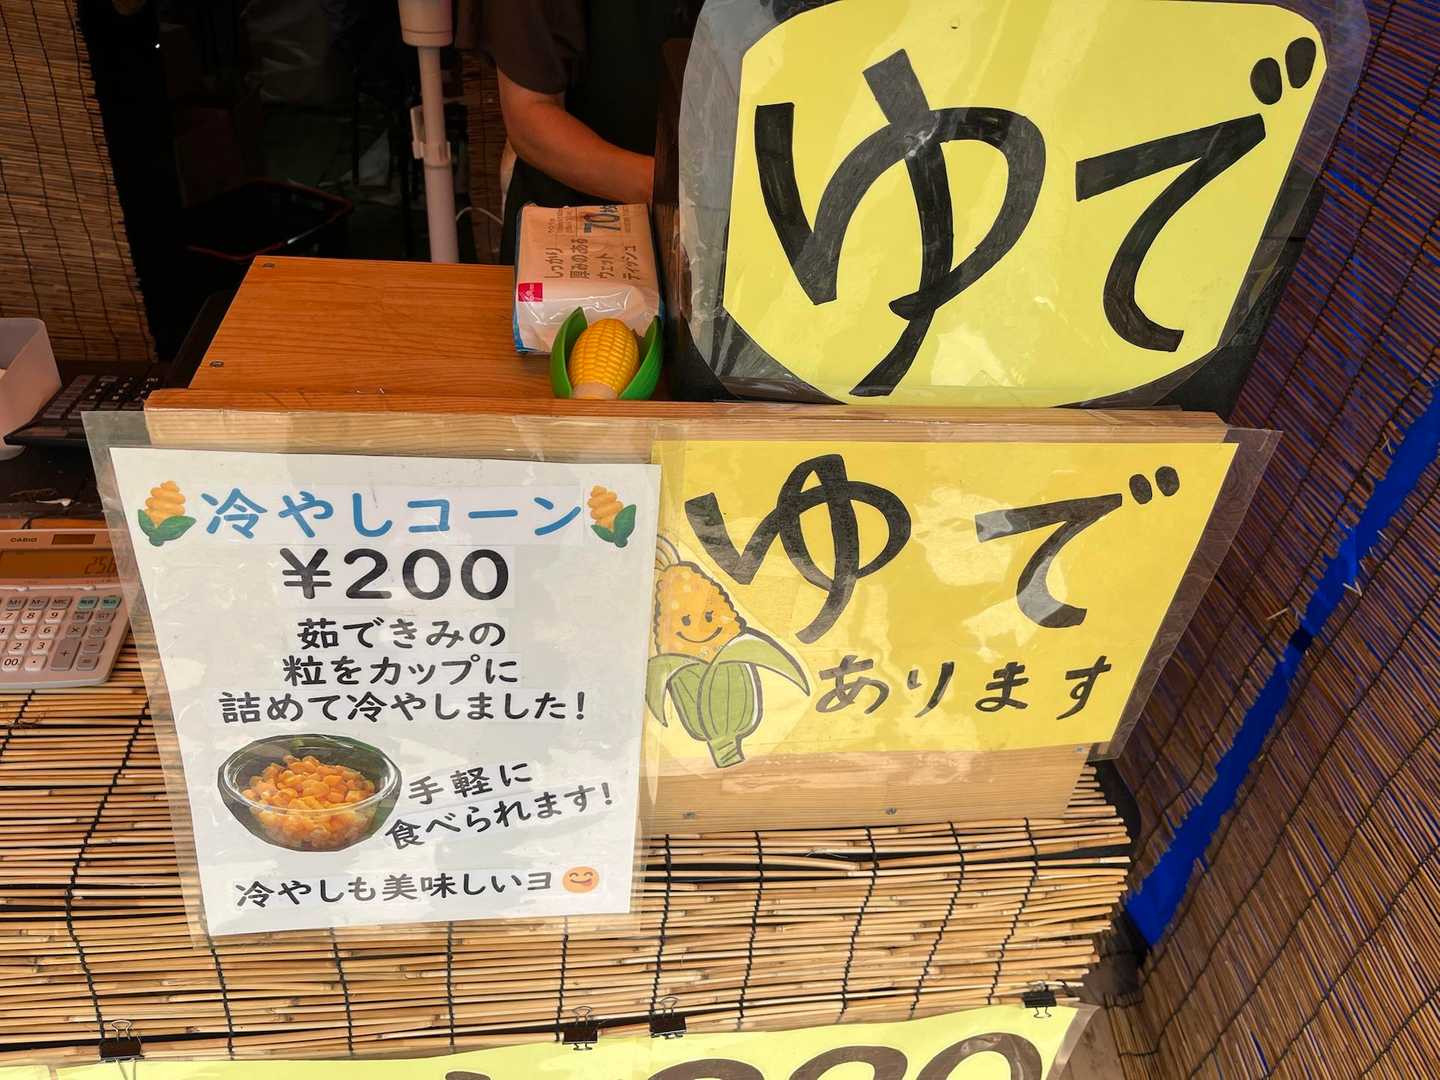 ゆで
しっかり
厚みのある
ウェット
ティッシュ
70
冷やしコーン
¥200
茹できみの
粒をカップに
詰めて冷やしました!
手軽に
食べられます!
冷やしも美味しいヨ
ゆで
あります
CASIO